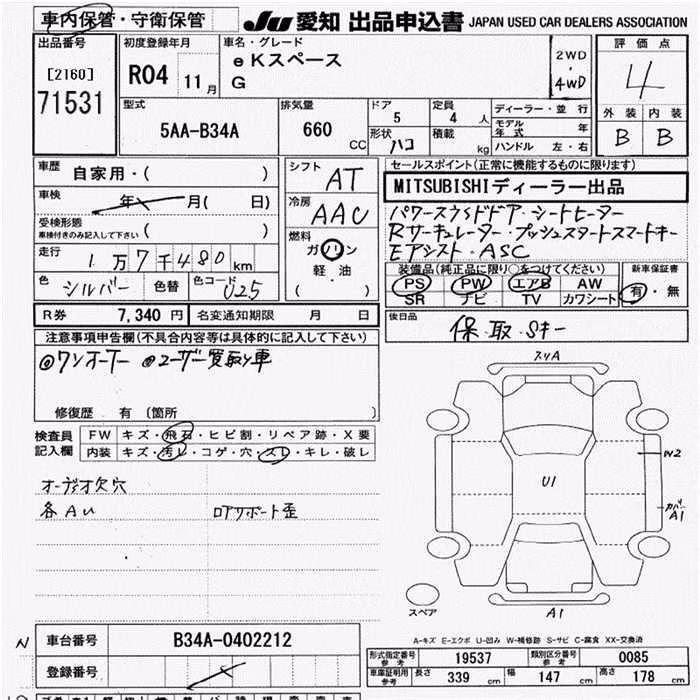 車内保管・守衛保管 JU 愛知 出品申込書 JAPAN USED CAR DEALERS ASSOCIATION
出品番号 初度登録年月 車名・グレード 評価点
[2160] R04 11月 eKスペース 2WD・4WD 4
71531 G
外装 内装
型式 排気量 ドア 5 定員 4人 ディーラー・並行 B B
5AA-B34A 660 CC 形状 ハコ 積載 kg モデル年式 年
ハンドル 左・右
車歴 自家用・( ) シフト AT セールスポイント(正常に機能するものに限ります)
MITSUBISHIディーラー出品
車検 年 月( 日) 冷房 AAC
パワースライドドア・シートヒーター
受検形態 ( )
車検付きのみ記入して下さい
Rサーキュレーター・プッシュスタートスマートキー
Eアシスト・ASC
走行 1万7千480km 燃料 ガソリン
軽・油
( )
装備品(純正品に限り○をつけてください) 新車保証書
色 シルバー 色替 色コード U25
PS PW エアB AW 有・無
SR ナビ TV カワシート
R券 7,340円 名変通知期限 月 日
後日品 保・取・Sキー
注意事項申告欄(不具合内容等は具体的に記入して下さい)
◎ワンオーナー ◎ユーザー買取り車
修復歴 有 〔箇所 〕
検査員記入欄 FW キズ・飛石・ヒビ割・リペア跡・X要
内装 キズ・汚レ・コゲ・穴・スレ・キレ・破レ
オーディオ欠穴
各AU ロアサポート歪
スリA
W2
U1
カバーA1
スペア
A1
A-キズ E-エクボ U-凹み W-補修跡 S-サビ C-腐食 XX-交換済
N 車台番号 B34A-0402212
登録番号
形式指定番号 参考 19537 類別区分番号 参考 0085
車庫証明用 参考 長さ 339cm 幅 147cm 高さ 178cm